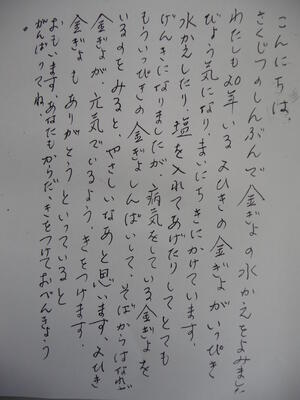 こんにちは、
さくじつのしんぶんで金ぎょの水かえをよみました
わたしも20年いる 3びきの金ぎょがいっぴき
びょう気になり、まいにちきにかけています。
水かえしたり、塩を入れてあげたりしてとても
げんきになりましたが、病気をしている金ぎょを
もういっぴきの金ぎょしんぱいして、そばからはなれず
いるのをみると、やさしいなあと思います、3びき
金ぎょが、元気でいるよう、きをつけます。
金ぎょも ありがとう といっていると
おもいます、あなたもからだにきをつけておべんきょう
がんばってね。